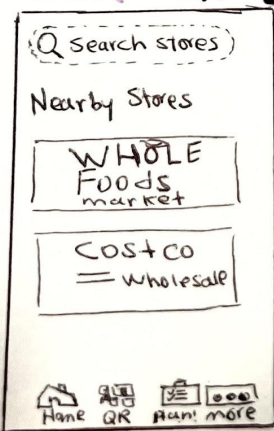 Search stores
Nearby Stores
WHOLE
Foods
market
COSTCO
wholesale
Home QR Plan! more